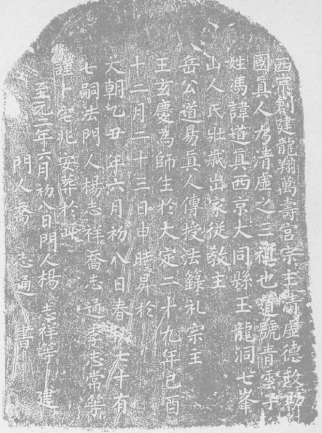 西京創建龍翔萬壽宮宗主高虛德政助
國真人乃清虛之三禋也道號青巒子
姓馮諱道真西京大同縣王龍洞七峯
山人民壯歲出家從教主
岳公道易真人傳授法籙礼宗主
王玄慶為師生於大定二十九年己酉
十二月二十三日申時昇於
大朝乙丑年六月初八日春秋七十有
七嗣法門人楊志祥喬志通李志常等
謹卜宅兆安葬於此
至元二年六月初八日門人楊志祥等建
門人喬志通書